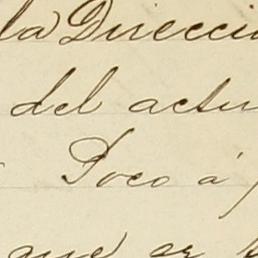 la Direcci
del actu
Poco á p
que er